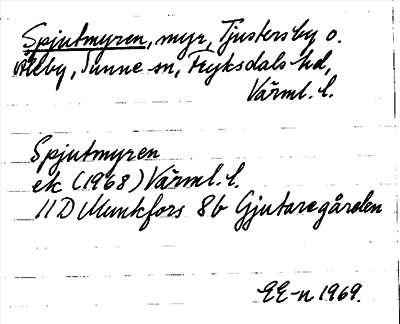 Spjutmyren, myr, Tjustersby o.
Ulby, Sunne sn, Fryksdals hd,
Värml. l.
Spjutmyren
ek (1968) Värml. l.
11D Munkfors 8b Gjutaregården
EE-n 1969.